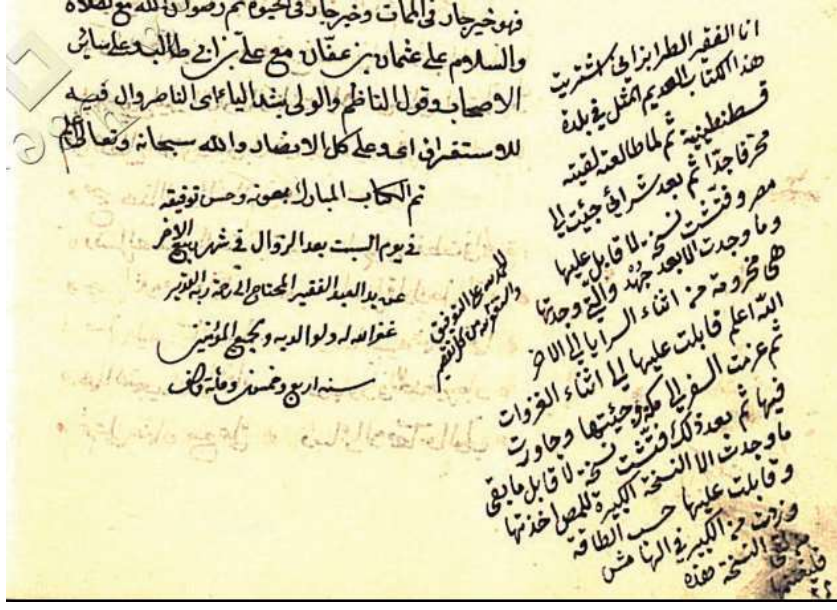 فهو خير جار في الممات وخير جار في الحيوة ثم رضوان الله مع الصلاة
والسلام على عثمان بن عفان مع علي بن ابي طالب وعلى سائر
الاصحاب وقول الناظم والولي بشد الياء اى الناصر وال فيه
للاستغراق اى وعلى كل الانصار والله سبحانه وتعالى اعلم
تم الكتاب المبارك بعونه وحسن توفيقه
في يوم السبت بعد الزوال في شهر ربيع الاخر
عن يد العبد الفقير المحتاج الى رحمة ربه القدير
غفر الله له ولوالديه ولجميع المؤمنين
سنه اربع وخمسون ومأية والف
الحمد لله على التوفيق
واستغفر الله من كل تقصير
انا الفقير الطرابزاني اشتريت
هذا الكتاب العديم المثل في بلدة
قسطنطينية ثم لما طالعته لقيته
محرفا جدا ثم بعد شرائي جيئت الى
مصر وفتشت نسخة لاقابل عليها
وما وجدت الا بعد جهد والتي وجدتها
هي مخرومة من اثناء السرايا الى الاخر
الله اعلم قابلت عليها الى اثناء الغزوات
ثم عزمت السفر الى مكة وجيئتها وجاورت
فيها ثم بعد ذلك فتشت نسخة لاقابل ما بقى
ما وجدت الا النسخة الكبيرة للمص اخذتها
وقابلت عليها حسب الطاقة
وزدت من الكبير في الهامش
النسخة هذه
فليغتنمها